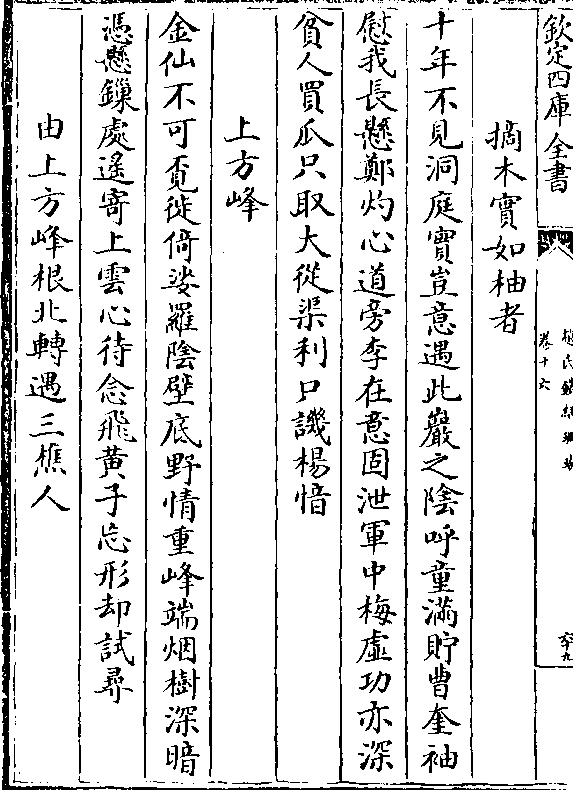 欽定四庫全書
卷十六
摘木實如柚者
十年不見洞庭實豈意遇此巖之陰呼童滿貯曹奎袖
慰我長懸鄭灼心道旁李在意固泄軍中梅虛功亦深
貧人買瓜只取大從渠利口譏楊愔
上方峰
金仙不可覓徙倚娑羅陰壁底野情重峰端烟樹深暗
憑懸鏁處遙寄上雲心待念飛黃子忘形却試尋
由上方峰根北轉遇三樵人